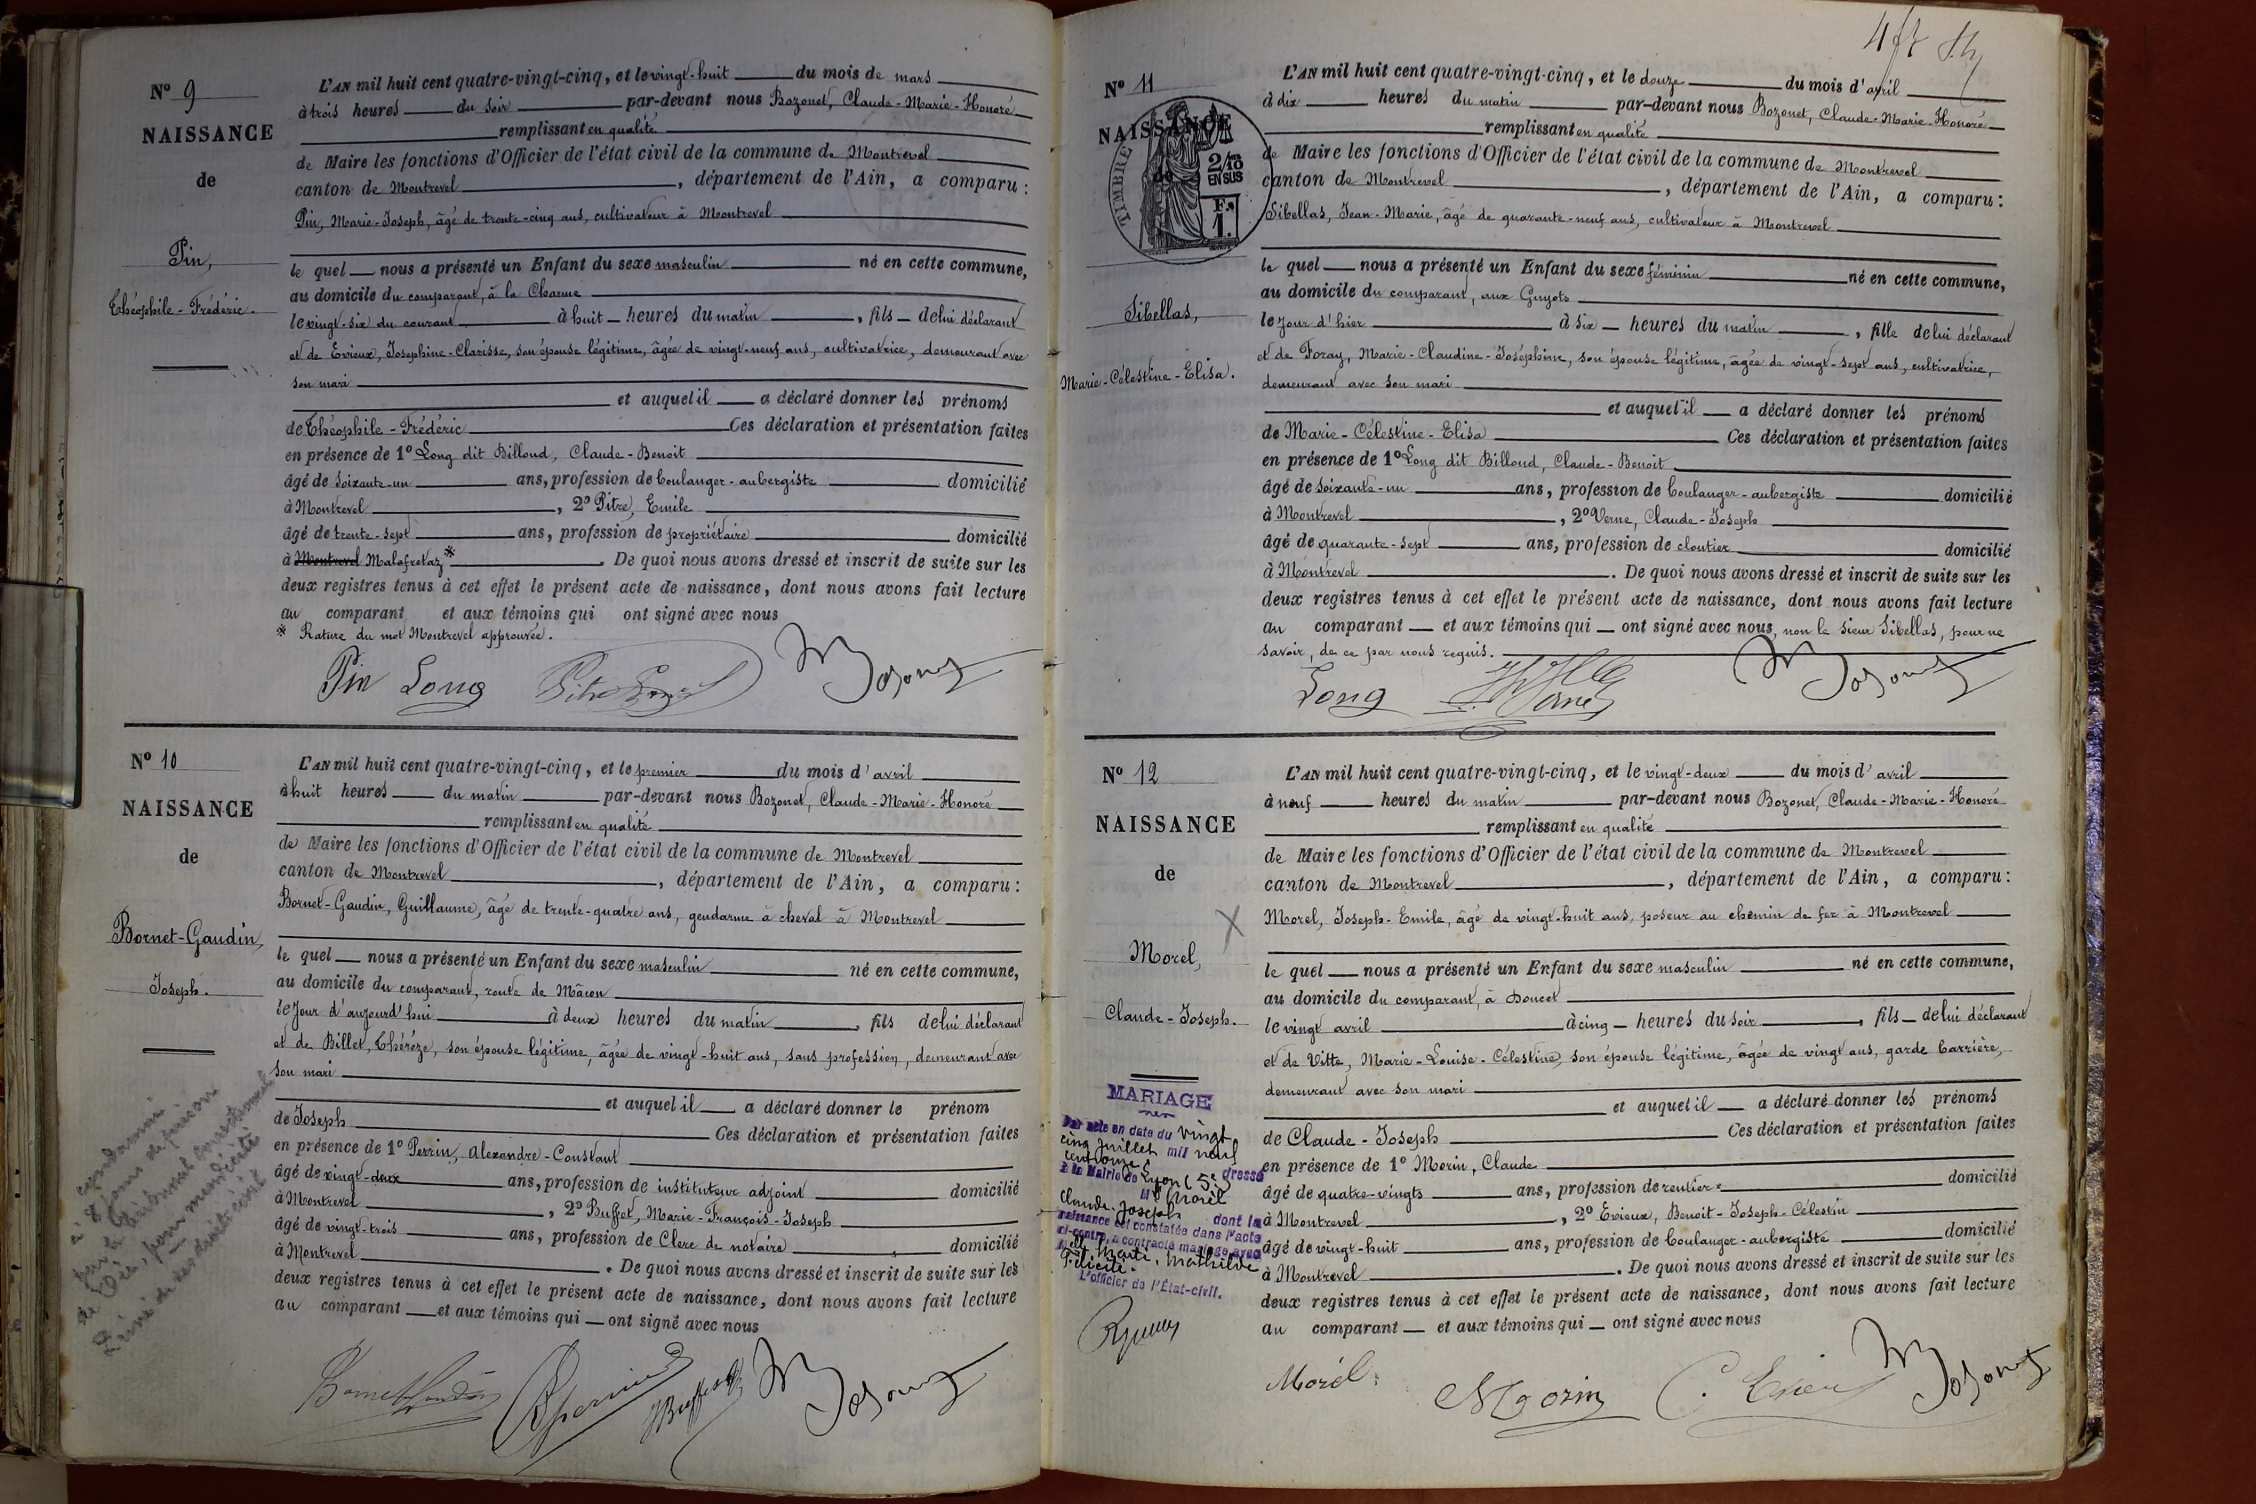 Nº 9
NAISSANCE
de
Pin,
Théophile - Frédéric.
L'AN mil huit cent quatre-vingt-cinq, et le vingt-huit du mois de mars
à trois heures du soir par-devant nous Bozonet, Claude-Marie-Honoré
remplissant en qualité
de Maire les fonctions d'Officier de l'état civil de la commune de Montrevel
canton de Montrevel, département de l'Ain, a comparu :
Pin, Marie-Joseph, âgé de trente-cinq ans, cultivateur à Montrevel
le quel nous a présenté un Enfant du sexe masculin né en cette commune,
au domicile du comparant, à la Charme
le vingt-six du courant à huit heures du matin, fils de lui déclarant
et de Evieux, Josephine-Clarisse, son épouse légitime, âgée de vingt-neuf ans, cultivatrice, demeurant avec
son mari
et auquel il a déclaré donner les prénoms
de Théophile - Frédéric Ces déclaration et présentation faites
en présence de 1º Long dit Billoud, Claude-Benoit
âgé de soixante-un ans, profession de boulanger-aubergiste domicilié
à Montrevel, 2º Pitre, Emile
âgé de trente-sept ans, profession de propriétaire domicilié
à Montrevel Malafretaz * . De quoi nous avons dressé et inscrit de suite sur les
deux registres tenus à cet effet le présent acte de naissance, dont nous avons fait lecture
au comparant et aux témoins qui ont signé avec nous
* Rature du mot Montrevel approuvée.
Pin Long Pitre Bozonet
Nº 10
NAISSANCE
de
Bornet-Gaudin,
Joseph.
à condamné
par le tribunal correctionnel
pour mendicité
L'AN mil huit cent quatre-vingt-cinq, et le premier du mois d'avril
à huit heures du matin par-devant nous Bozonet, Claude-Marie-Honoré
remplissant en qualité
de Maire les fonctions d'Officier de l'état civil de la commune de Montrevel
canton de Montrevel, département de l'Ain, a comparu :
Bornet-Gaudin, Guillaume, âgé de trente-quatre ans, gendarme à cheval à Montrevel
le quel nous a présenté un Enfant du sexe masculin né en cette commune,
au domicile du comparant, route de Mâcon
le jour d'aujourd'hui à deux heures du matin, fils de lui déclarant
et de Billet, Thérèze, son épouse légitime, âgée de vingt-huit ans, sans profession, demeurant avec
son mari
et auquel il a déclaré donner le prénom
de Joseph Ces déclaration et présentation faites
en présence de 1º Perrin, Alexandre-Constant
âgé de vingt-deux ans, profession de instituteur adjoint domicilié
à Montrevel, 2º Buffet, Marie-François-Joseph
âgé de vingt-trois ans, profession de Clerc de notaire, domicilié
à Montrevel. De quoi nous avons dressé et inscrit de suite sur les
deux registres tenus à cet effet le présent acte de naissance, dont nous avons fait lecture
au comparant et aux témoins qui ont signé avec nous
Bornet Gaudin Perrin Buffet Bozonet
Nº 11
NAISSANCE
de
TIMBRE
2/10es
EN SUS
F.
1.
Sibellas,
Marie-Célestine-Elisa.
L'AN mil huit cent quatre-vingt-cinq, et le douze du mois d'avril
à dix heures du matin par-devant nous Bozonet, Claude-Marie-Honoré
remplissant en qualité
de Maire les fonctions d'Officier de l'état civil de la commune de Montrevel
canton de Montrevel, département de l'Ain, a comparu :
Sibellas, Jean-Marie, âgé de quarante-neuf ans, cultivateur à Montrevel
le quel nous a présenté un Enfant du sexe féminin né en cette commune,
au domicile du comparant, aux Guyots
le jour d'hier à six heures du matin, fille de lui déclarant
et de Foray, Marie-Claudine-Joséphine, son épouse légitime, âgée de vingt-sept ans, cultivatrice,
demeurant avec son mari
et auquel il a déclaré donner les prénoms
de Marie-Célestine-Elisa Ces déclaration et présentation faites
en présence de 1º Long dit Billoud, Claude-Benoit
âgé de soixante-un ans, profession de boulanger-aubergiste domicilié
à Montrevel, 2º Verne, Claude-Joseph
âgé de quarante-sept ans, profession de cloutier domicilié
à Montrevel. De quoi nous avons dressé et inscrit de suite sur les
deux registres tenus à cet effet le présent acte de naissance, dont nous avons fait lecture
au comparant et aux témoins qui ont signé avec nous, non le sieur Sibellas, pour ne
savoir, de ce par nous requis.
Long Verne Bozonet
Nº 12
NAISSANCE
de
Morel,
Claude-Joseph.
MARIAGE
Par acte en date du vingt
cinq juillet mil neuf
cent onze, dressé
à la Mairie de Lyon (5e)
Mr Morel
Claude-Joseph dont la
naissance est constatée dans l'acte
ci-contre, a contracté mariage avec
Mathilde
Félicité.
L'officier de l'État-civil.
L'AN mil huit cent quatre-vingt-cinq, et le vingt-deux du mois d'avril
à neuf heures du matin par-devant nous Bozonet, Claude-Marie-Honoré
remplissant en qualité
de Maire les fonctions d'Officier de l'état civil de la commune de Montrevel
canton de Montrevel, département de l'Ain, a comparu :
Morel, Joseph-Emile, âgé de vingt-huit ans, poseur au chemin de fer à Montrevel
le quel nous a présenté un Enfant du sexe masculin né en cette commune,
au domicile du comparant, à Doucet
le vingt avril à cinq heures du soir, fils de lui déclarant
et de Vitte, Marie-Louise-Célestine, son épouse légitime, âgée de vingt ans, garde barrière,
demeurant avec son mari
et auquel il a déclaré donner les prénoms
de Claude-Joseph Ces déclaration et présentation faites
en présence de 1º Morin, Claude
âgé de quatre-vingts ans, profession de rentier domicilié
à Montrevel, 2º Evieux, Benoit-Joseph-Célestin
âgé de vingt-huit ans, profession de boulanger-aubergiste domicilié
à Montrevel. De quoi nous avons dressé et inscrit de suite sur les
deux registres tenus à cet effet le présent acte de naissance, dont nous avons fait lecture
au comparant et aux témoins qui ont signé avec nous
Morel Morin C. Evieux Bozonet